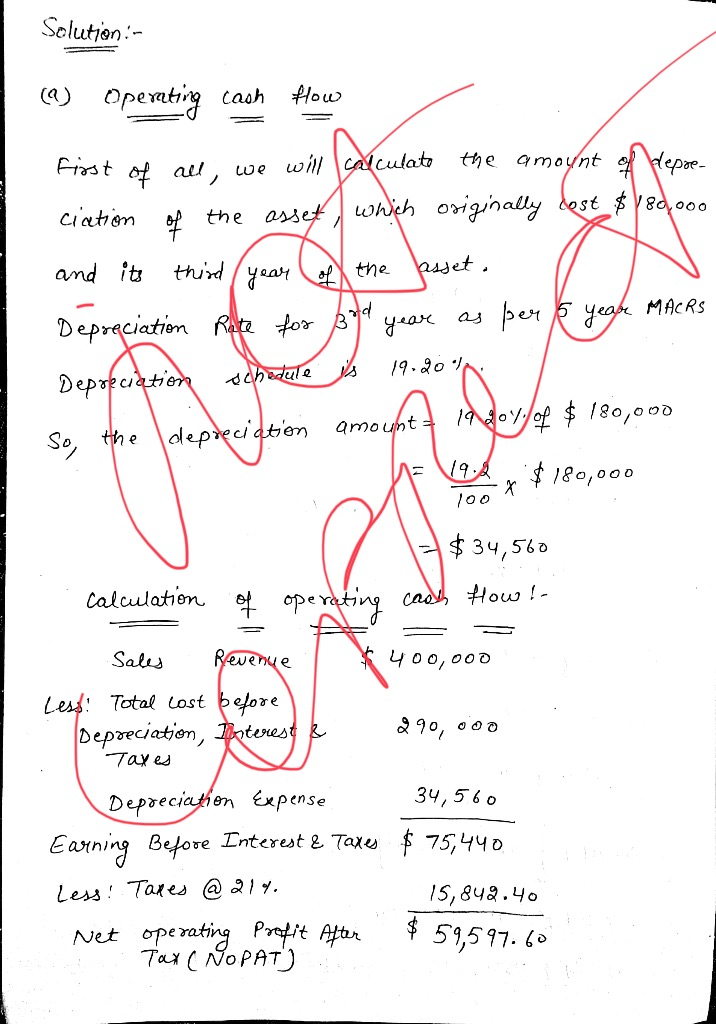 Solution:-
(a) Operating cash flow
First of all, we will calculate the amount of depre-
ciation of the asset, which originally cost $180,000
and its third year of the asset.
Depreciation Rate for 3rd year as per 5 year MACRS
Depreciation schedule is 19.20%.
So, the depreciation amount = 19.20% of $180,000
= 19.2/100 x $180,000
= $34,560
Calculation of operating cash flow:-
Sales Revenue $400,000
Less: Total Cost before
Depreciation, Interest & 290,000
Taxes
Depreciation Expense 34,560
Earning Before Interest & Taxes $75,440
Less: Taxes @ 21%. 15,842.40
Net operating Profit After $59,597.60
Tax (NOPAT)